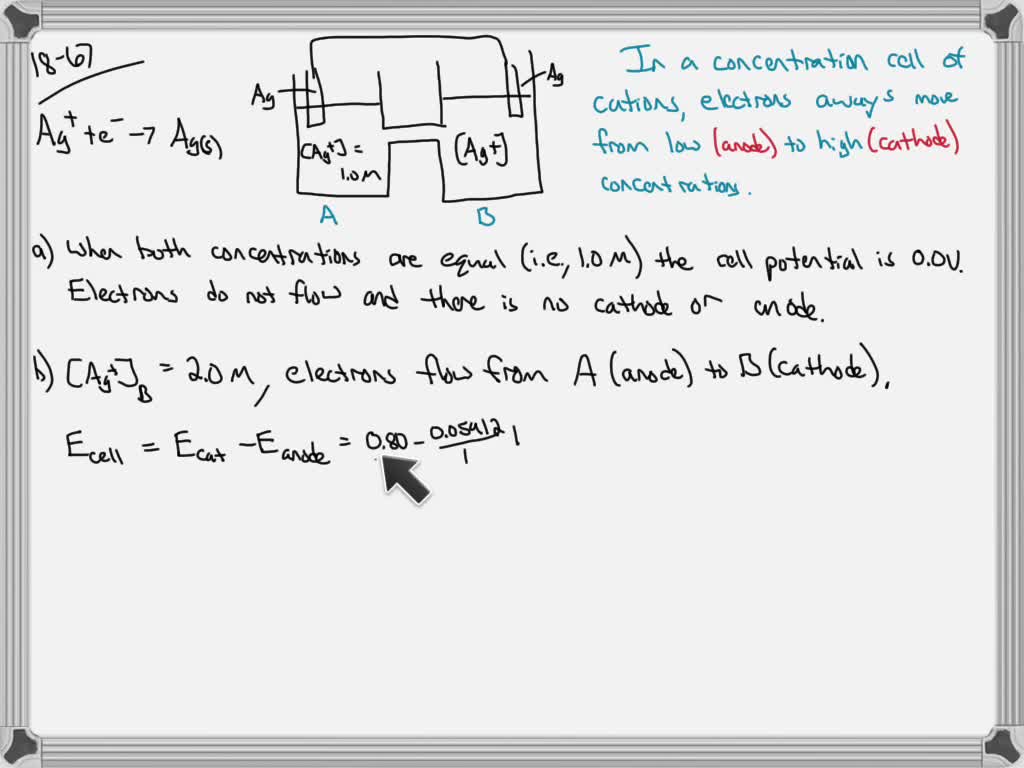 18-67
Ag⁺ + e⁻ → Ag(s)
Ag
Ag
[Ag⁺] =
1.0 M
[Ag⁺]
A
B
In a concentration cell of
cations, electrons aways move
from low (anode) to high (cathode)
concentrations.
a) When both concentrations are equal (i.e., 1.0 M) the cell potential is 0.0V.
Electrons do not flow and there is no cathode or anode.
b) [Ag⁺]B = 2.0 M, electrons flow from A (anode) to B (cathode).
Ecell = Ecat - Eanode = 0.80 - 0.05912/1 l